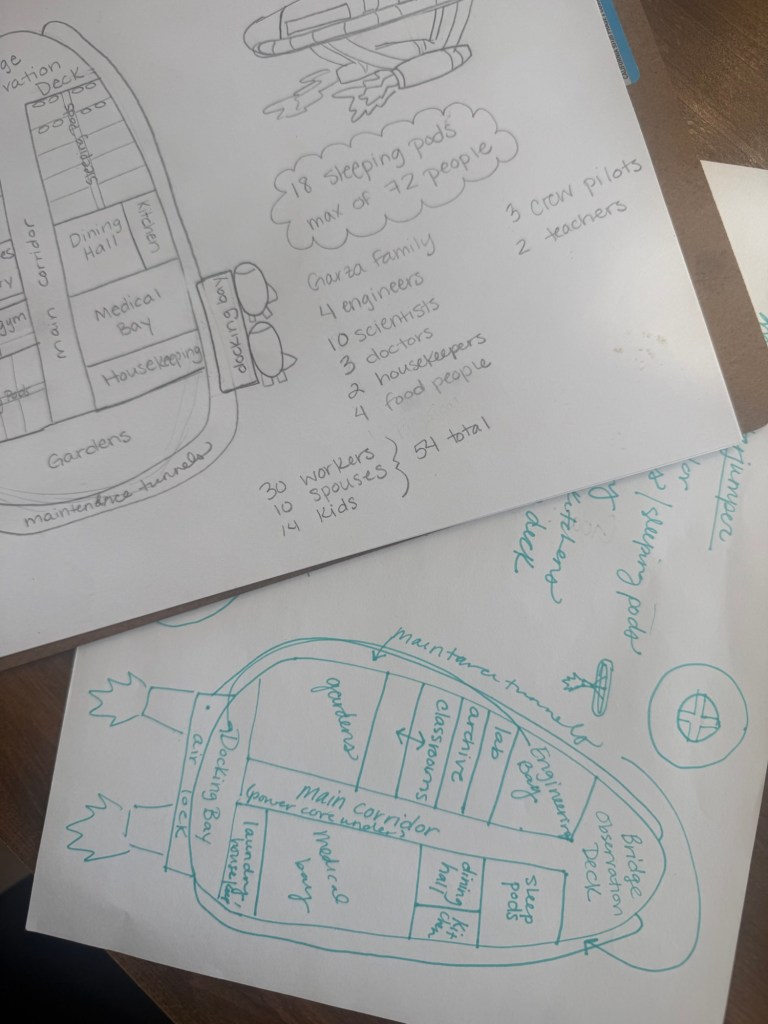 ration
Deck
Sleeping Pods
Dining
Hall
Kitchen
Main corridor
gym
Medical
Bay
Housekeeping
docking bay
Gardens
maintenance tunnels
18 sleeping pods
max of 72 people
Garza family
4 engineers
10 scientists
3 doctors
2 housekeepers
4 food people
3 crew pilots
2 teachers
30 workers
10 spouses
14 kids
54 total
jumper
/sleeping pods
deck
maintance tunnels
gardens
classrooms
archive
lab
Engineering
Bay
Bridge
Observation
Deck
Docking Bay
air lock
main corridor
(power core under)
laundry/
medical
bay
dining
hall
kit
chen
sleep
pods